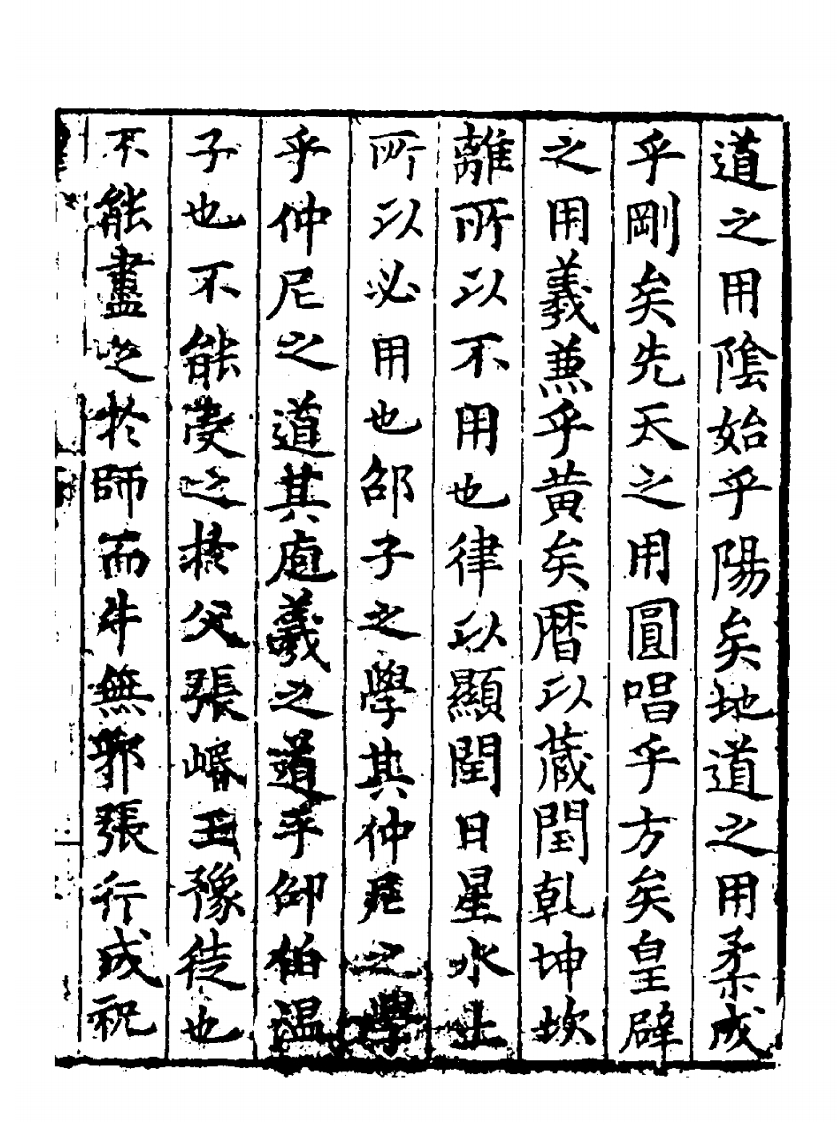 道之用陰始乎陽矣地道之用柔成
乎剛矣先天之用圓唱乎方矣皇辟
之用羲兼乎黄矣暦以蔵閏乾坤坎
離所以不用也律以顯閏日星水土
所以必用也邵子之學其仲尼之學
乎仲尼之道其庖羲之道乎邵伯温
子也不能受之扵父張㟭王豫徒也
不能盡之扵師而牛無邪張行成祝